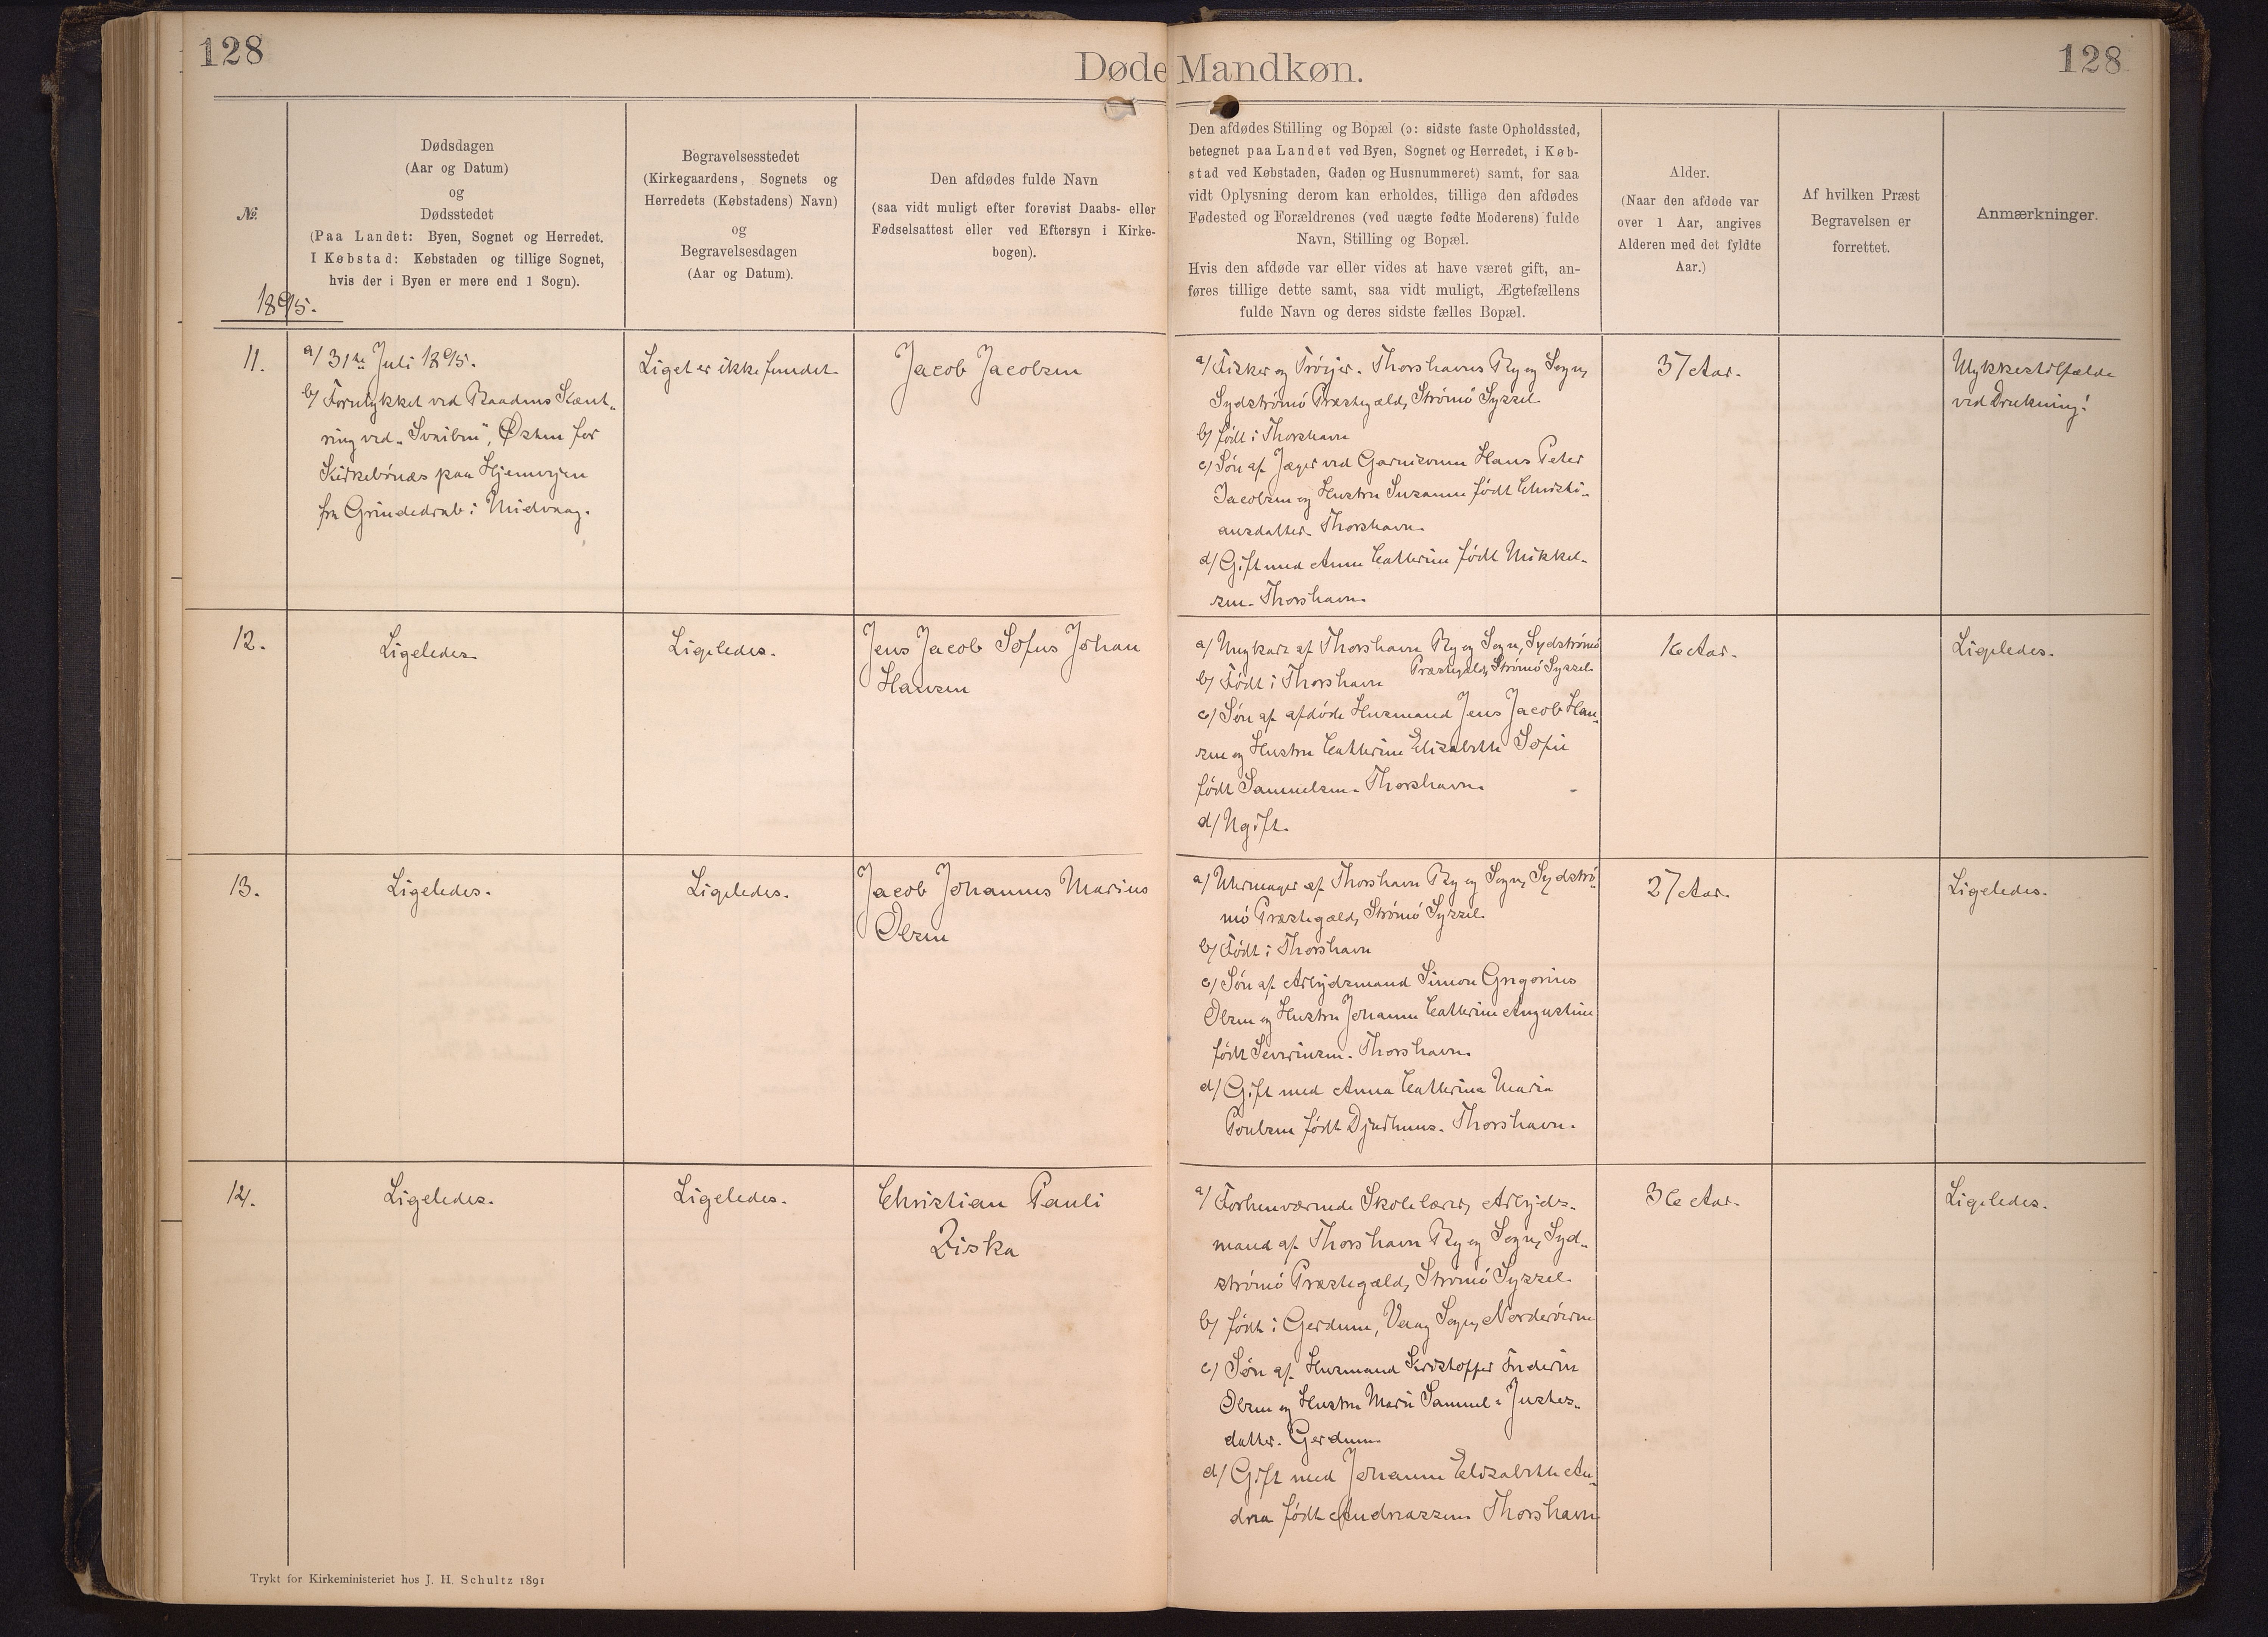 128
Døde Mandkøn.
128
№
1895.
Dødsdagen
(Aar og Datum)
og
Dødsstedet
(Paa Landet: Byen, Sognet og Herredet.
I Købstad: Købstaden og tillige Sognet,
hvis der i Byen er mere end 1 Sogn).
Begravelsesstedet
(Kirkegaardens, Sognets og
Herredets (Købstadens) Navn)
og
Begravelsesdagen
(Aar og Datum).
Den afdødes fulde Navn
(saa vidt muligt efter forevist Daabs- eller
Fødselsattest eller ved Eftersyn i Kirke-
bogen).
Den afdødes Stilling og Bopæl (ɔ: sidste faste Opholdssted,
betegnet paa Landet ved Byen, Sognet og Herredet, i Køb-
stad ved Købstaden, Gaden og Husnummeret) samt, for saa
vidt Oplysning derom kan erholdes, tillige den afdødes
Fødested og Forældrenes (ved uægte fødte Moderens) fulde
Navn, Stilling og Bopæl.
Hvis den afdøde var eller vides at have været gift, an-
føres tillige dette samt, saa vidt muligt, Ægtefællens
fulde Navn og deres sidste fælles Bopæl.
Alder.
(Naar den afdøde var
over 1 Aar, angives
Alderen med det fyldte
Aar.)
Af hvilken Præst
Begravelsen er
forrettet.
Anmærkninger.
11.
a/ 31te Juli 1895.
b/ Forulykket ved Baadens Kænt-
ring ved "Sveiben", Østen for
Kirkebönæs paa Hjemvejen
fra Grindedrab i Midvaag.
Liget er ikke fundet.
Jacob Jacobsen
a/ Fisker og . Thorshavns By og Sogn,
Sydströmö Præstegæld, Strömö Syssel
b/ født i Thorshavn
c/ Søn af Jæger ved Garnisonen Hans Peter
Jacobsen og Hustru Susanne født Christi-
ansdatter. Thorshavn.
d/ Gift med Anne Cathrine født Mikkel-
sen. Thorshavn.
37 Aar.
Ulykkestilfælde
ved Drukning!
12.
Ligeledes.
Ligeledes.
Jens Jacob Sofus Johan
Hansen
a/ Ungkarl af Thorshavn By og Sogn, Sydströmö
Præstegæld, Strömö Syssel.
b/ Født i Thorshavn
c/ Søn af afdöde Husmand Jens Jacob Han-
sen og Hustru Cathrine Elisabeth Sofie
født Samuelsen. Thorshavn.
d/ Ugift.
16 Aar.
Ligeledes.
13.
Ligeledes.
Ligeledes.
Jacob Johannes Marius
Olsen
a/ Uhrmager af Thorshavn By og Sogn, Sydströ-
mö Præstegæld, Strömö Syssel.
b/ Født i Thorshavn
c/ Søn af Arbejdsmand Simon Gregorius
Olsen og Hustru Johanne Cathrine Augustine
født Severinsen. Thorshavn.
d/ Gift med Anna Cathrina Maria
Poulsen født Djurhuus. Thorshavn.
27 Aar.
Ligeledes.
14.
Ligeledes.
Ligeledes.
Christian Pauli
Ziska
a/ Forhenværende Skolelærer, Arbejds-
mand af Thorshavn By og Sogn, Syd-
strömö Præstegæld, Strömö Syssel.
b/ født i Gerdum, Vaag Sogn, Norderöerne
c/ Søn af Husmand Kristoffer Frederik
Olsen og Hustru Marie Samuel-Justes-
datter. Gerdum.
d/ Gift med Johanne Elisabeth An-
drea født Andreassen. Thorshavn
36 Aar.
Ligeledes.
Trykt for Kirkeministeriet hos J. H. Schultz 1891